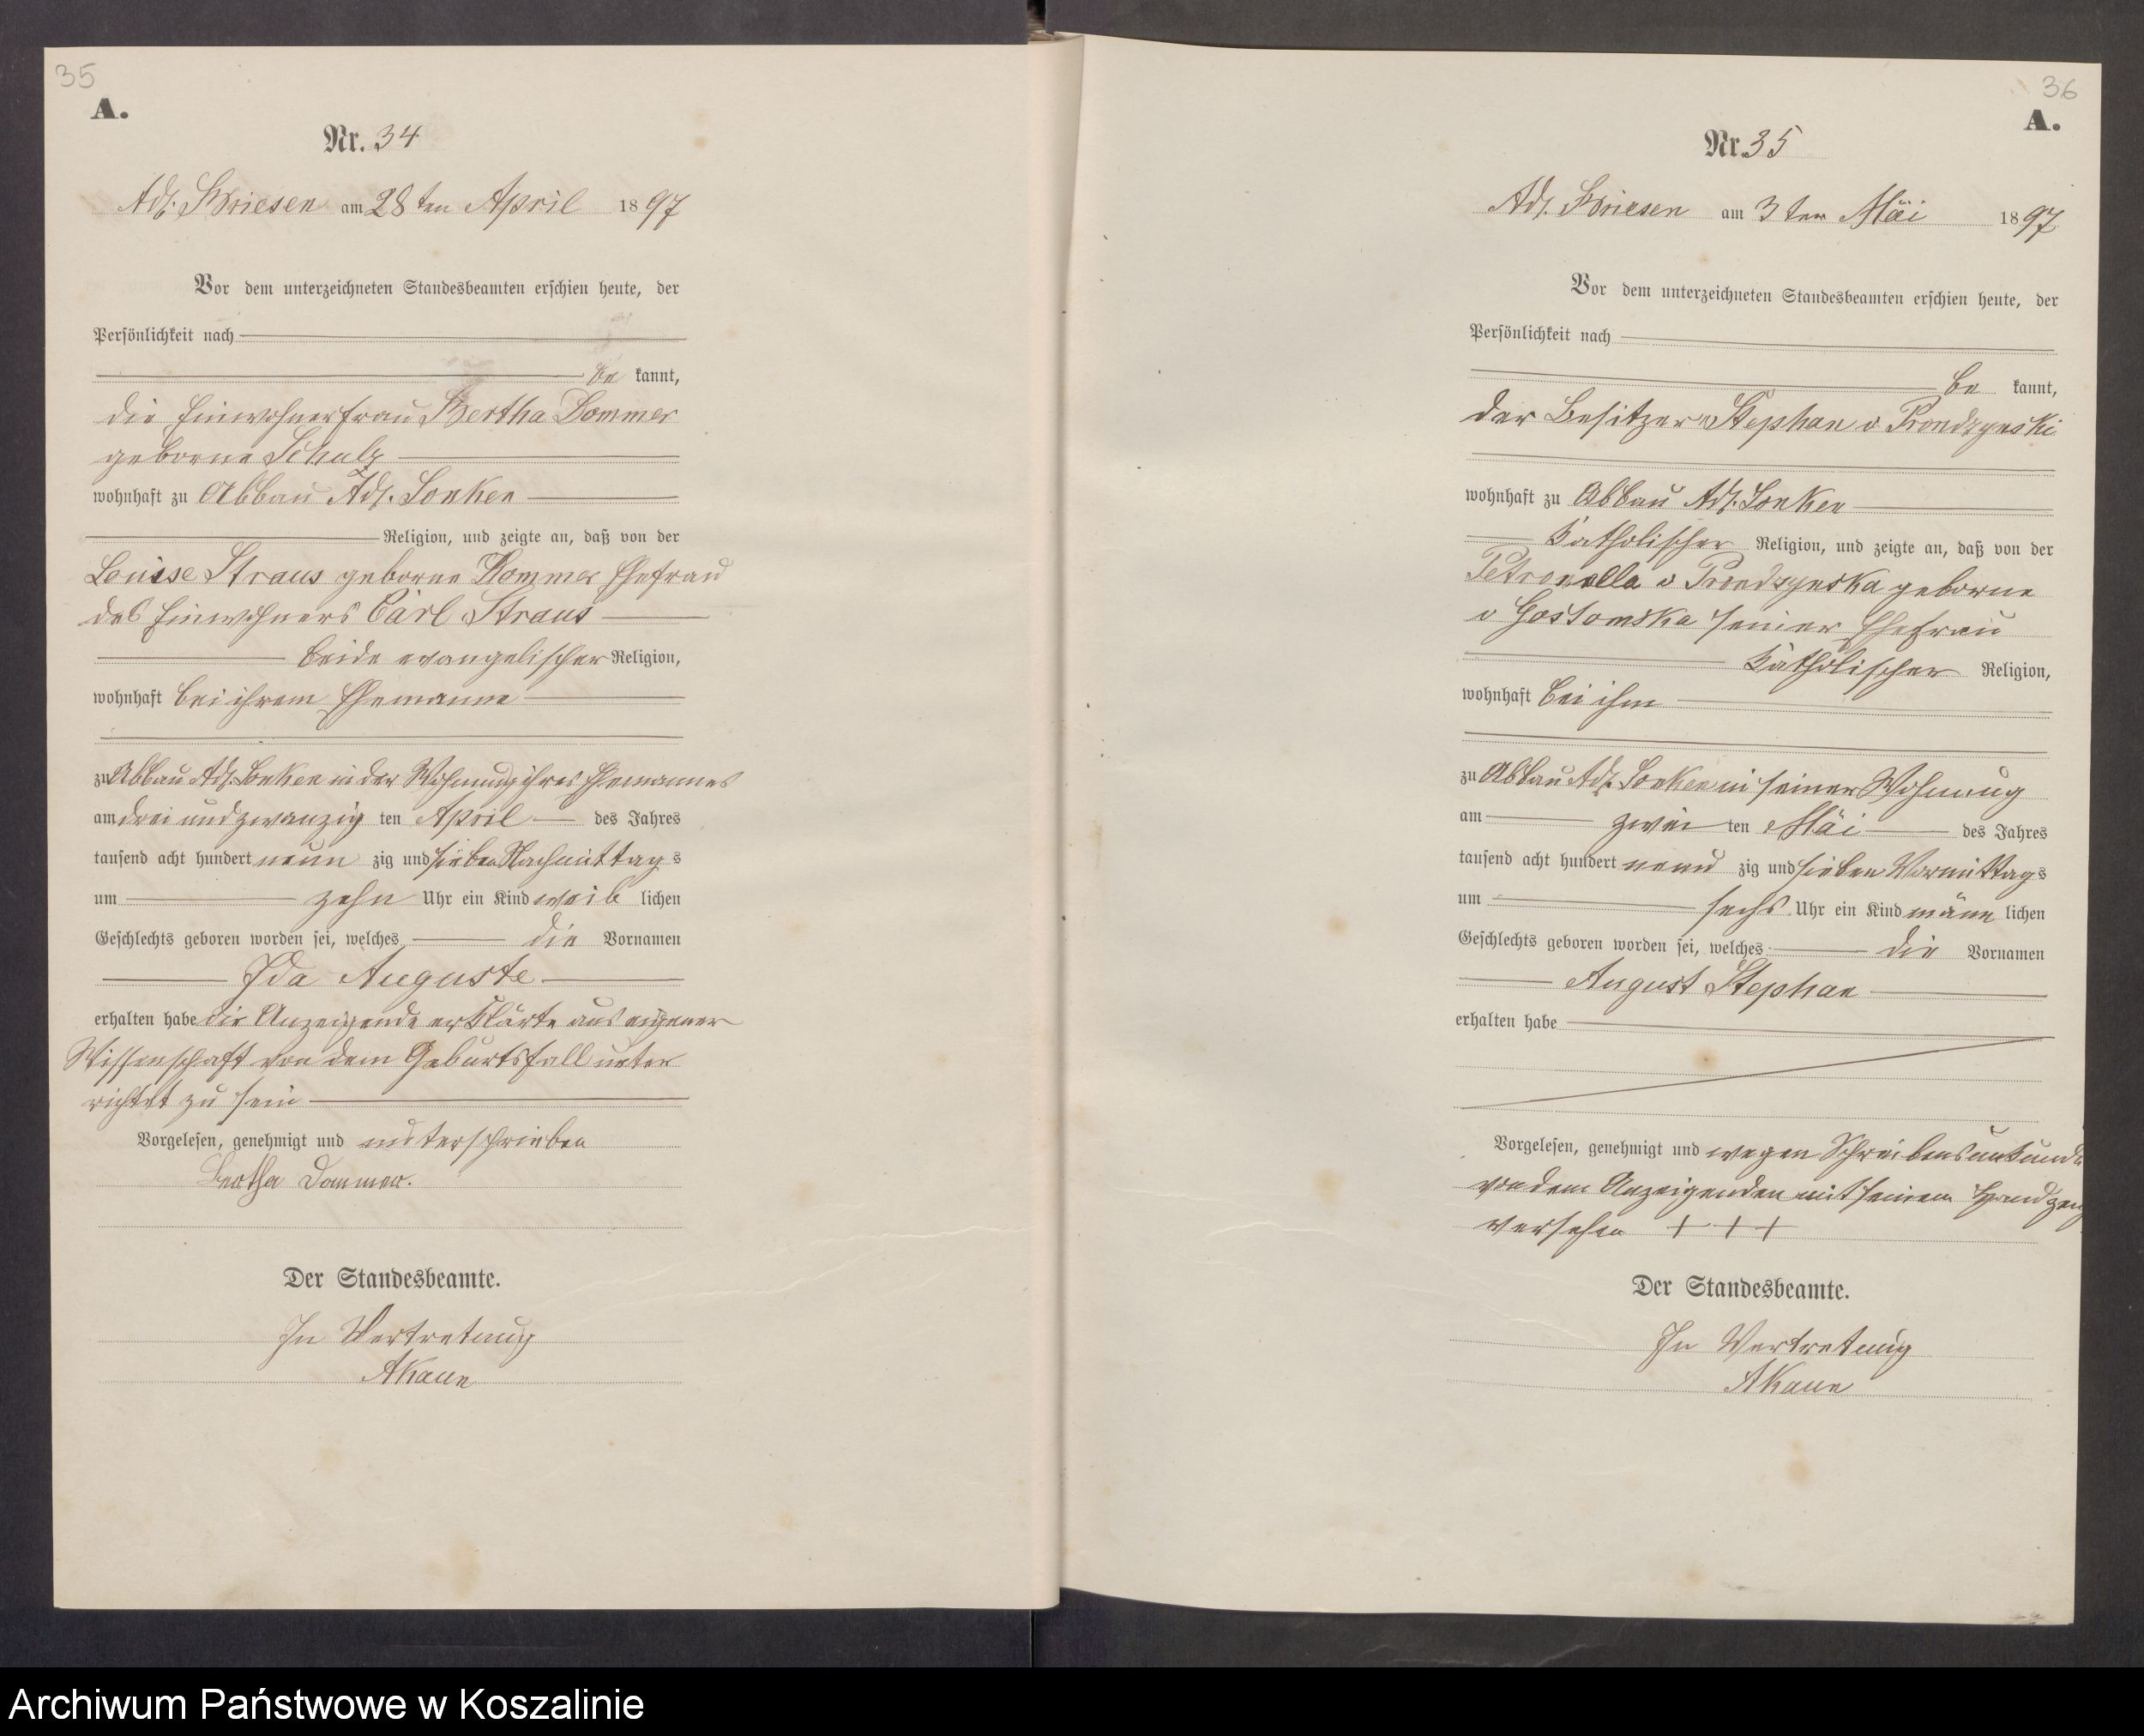 35
A.
Nr. 34
Adl. Briesen am 28 ten April 1897
Vor dem unterzeichneten Standesbeamten erschien heute, der
Persönlichkeit nach
be kannt,
die Einwohnerfrau Bertha Dommer
geborne Schulz
wohnhaft zu Abbau Adl. Lonken
Religion, und zeigte an, daß von der
Louise Straus geborne Dommer Ehefrau
des Einwohners Carl Straus
beide evangelischer Religion,
wohnhaft bei ihrem Ehemanne
zu Abbau Adl. Lonken in der Wohnung ihres Ehemannes
am drei und zwanzig ten April des Jahres
tausend acht hundert neun zig und sieben Nachmittags
um zehn Uhr ein Kind weib lichen
Geschlechts geboren worden sei, welches die Vornamen
Ida Auguste
erhalten habe die Anzeigende erklärte aus eigener
Wissenschaft von dem Geburtsfall unter
richtet zu sein
Vorgelesen, genehmigt und unterschrieben
Bertha Dommer.
Der Standesbeamte.
In Vertretung
36
A.
Nr. 35
Adl. Briesen am 3 ten Mai 1897
Vor dem unterzeichneten Standesbeamten erschien heute, der
Persönlichkeit nach
be kannt,
der Besitzer Stephan v Prondzynski
wohnhaft zu Abbau Adl. Lonken
Katholischer Religion, und zeigte an, daß von der
Petronella v Prondzynska geborne
v Gostomska seiner Ehefrau
Katholischer Religion,
wohnhaft bei ihm
zu Abbau Adl. Lonken in seiner Wohnung
am zwei ten Mai des Jahres
tausend acht hundert neun zig und sieben Vormittags
um sechs Uhr ein Kind männ lichen
Geschlechts geboren worden sei, welches die Vornamen
August Stephan
erhalten habe
Vorgelesen, genehmigt und wegen Schreibensunkunde
von dem Anzeigenden mit seinem
versehen + + +
Der Standesbeamte.
In Vertretung
Archiwum Państwowe w Koszalinie